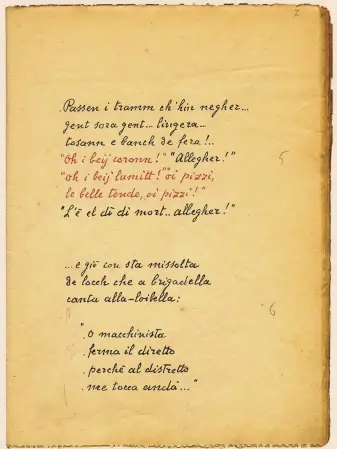 Passen i tramm ch'hin negher...
gent sora gent... lingera...
tosann e banch de fera!..
"Oh i beij coronn!" "Allegher!"
"oh i beij lumitt!" "oi pizzi,
le belle tende, oi pizzi!"
"L'è el dì di mort.. allegher!"
5
...e giò con sta missolta
de locch che a brigadella
canta alla-loibella:
6
"o macchinista
ferma il diretto
perchè al distretto
mee tocca andà..."